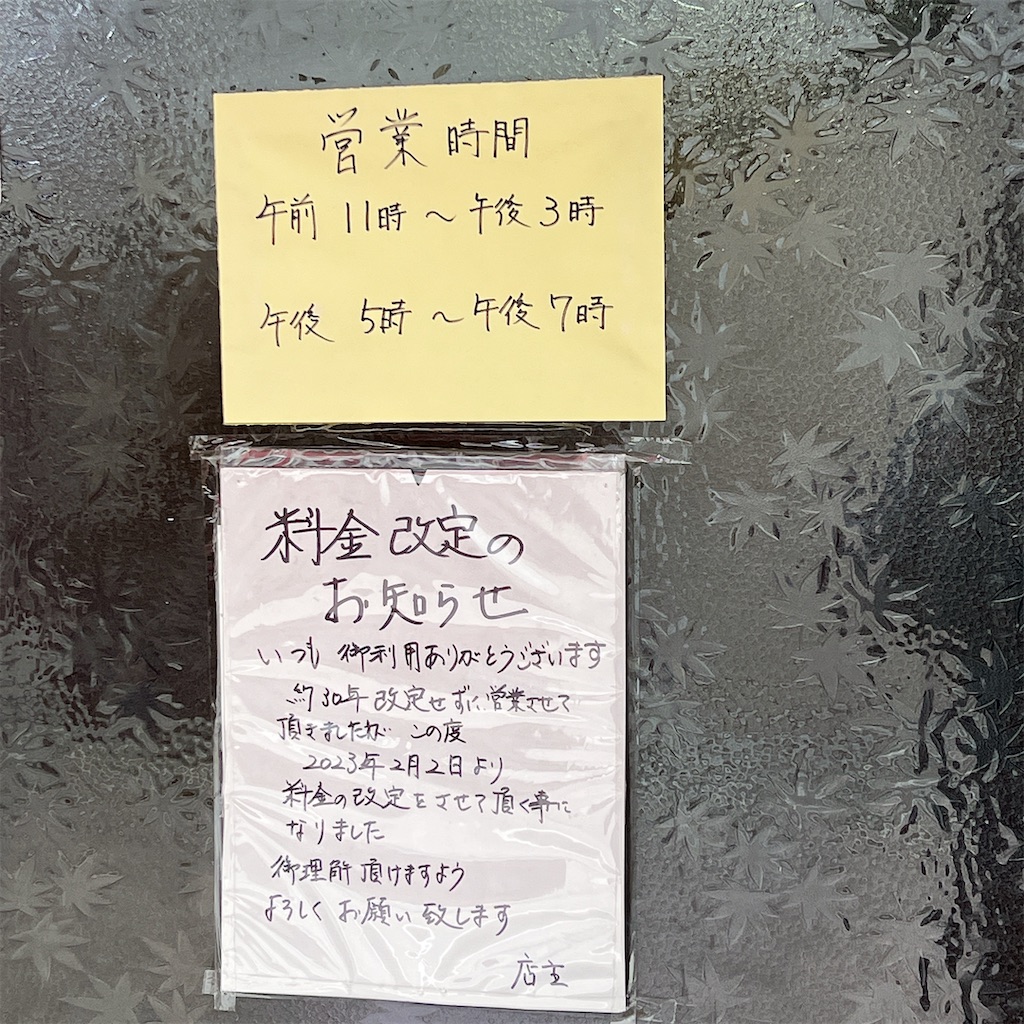 営業時間
午前 11時 ～ 午後 3時
午後 5時 ～ 午後 7時
料金改定の
お知らせ
いつも 御利用ありがとうございます
約30年改定せずに営業させて
頂きましたが この度
2023年2月2日より
料金の改定をさせて頂く事に
なりました
御理解頂けますよう
よろしくお願い致します
店主